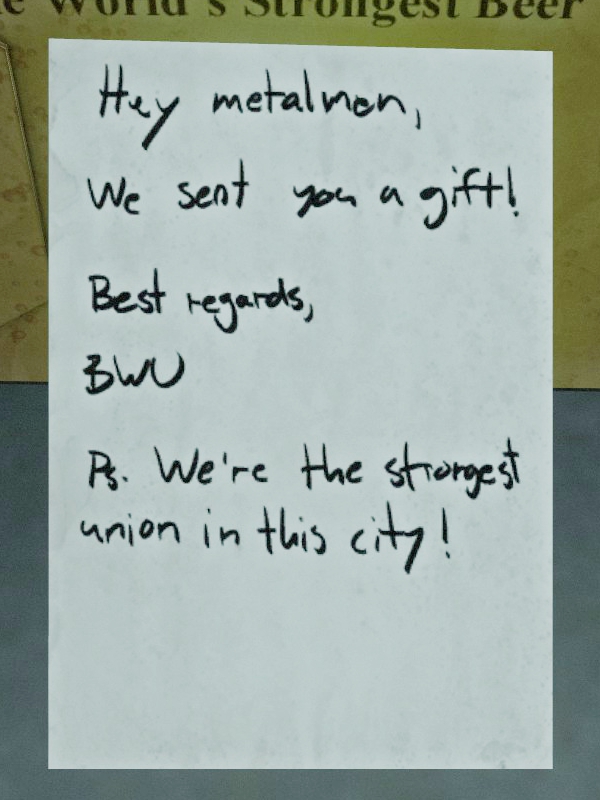 World's Strongest Beer
Hey metalmen,
We sent you a gift!
Best regards,
BWU
Ps. We're the strongest
union in this city!